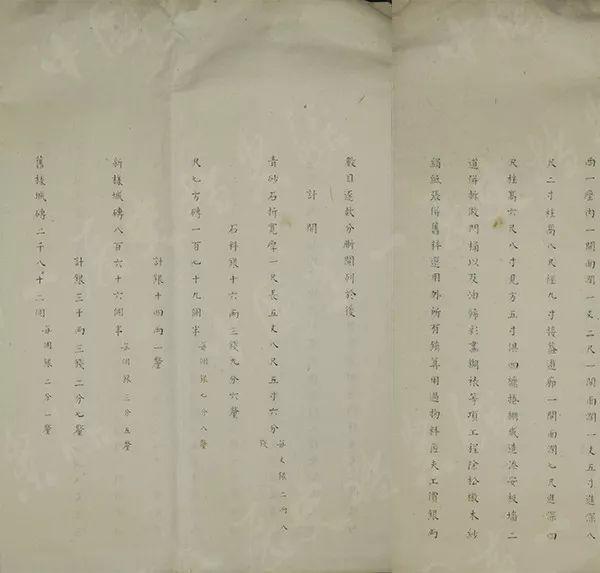 一座內一間面濶一丈二尺一間面濶一丈五寸進深八
尺二寸柱高八尺徑九寸接蓋遊廊一間面濶七尺進深四
尺柱高六尺八寸見方五寸俱四檁捲棚成造添安板墻二
道併拆做門桶以及油飾彩畫糊裱等項工程除松椴木紗
絹紙張併舊料選用外所有算用過物料匠夫工價銀兩
數目逐款分晰開列於後
計開
青砂石折寬厚一尺長五丈八尺五寸六分每丈銀二兩八
錢
石料銀十六兩三錢九分六釐
尺七方磚一百七十九個半每個銀七分八釐
計銀十四兩一釐
新樣城磚八百六十六個半每個銀三分五釐
計銀三十兩三錢二分七釐
舊樣城磚二千八十二個每個銀二分一釐